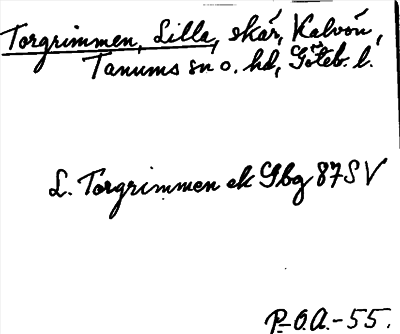 Torgrimmen, Lilla, skär, Kalvön,
Tanums sn o. hd, Göteb. l.
L. Torgrimmen ek Gbg 87SV
P-O.A.-55.